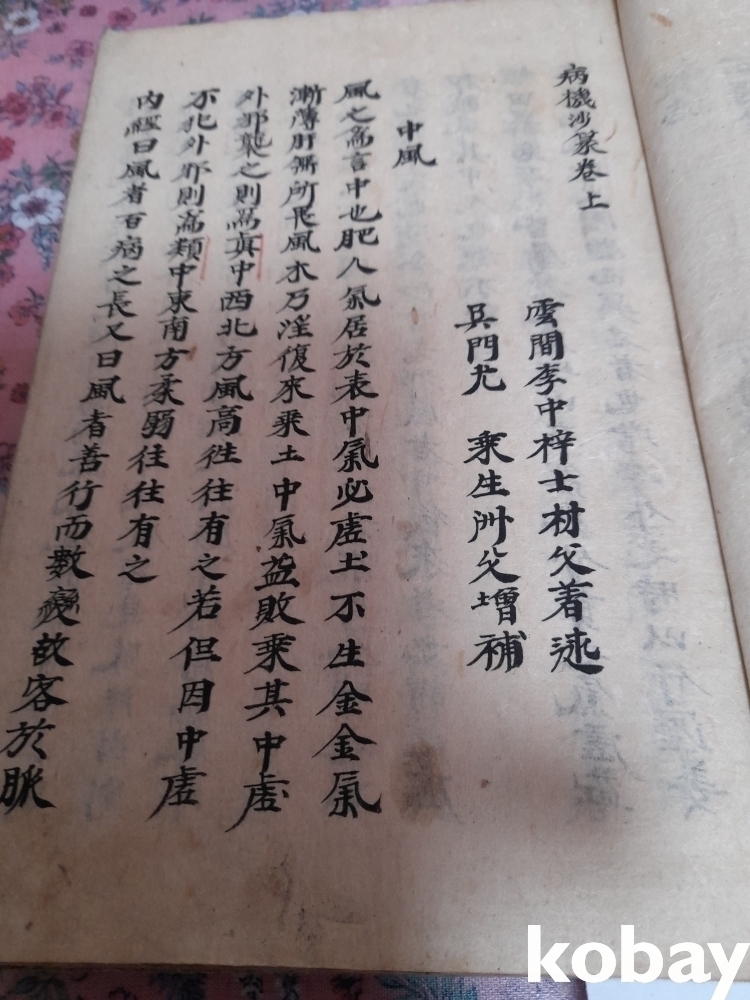 病機沙篆卷上
雲間李中梓士材父著述
吳門尤 乘生洲父增補
中風
風之爲言中也肥人氣居於表中氣必虛土不生金金氣
漸薄肝無所畏風木乃淫復來乘土中氣益敗乘其中虛
外邪襲之則爲眞中西北方風高徃往有之若但因中虛
不化外邪則爲類中東南方柔弱往往有之
內經曰風者百病之長又曰風者善行而數變故客於脈
kobay